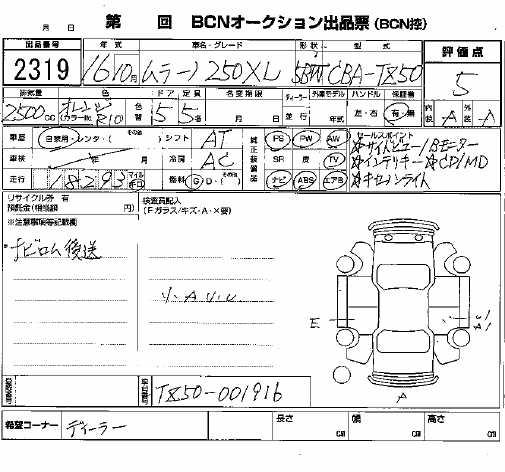 月 日 第 回 BCNオークション出品票 (BCN控)
出品番号 年式 車名・グレード 形状 型式 評価点
2319 16/10月 ムラーノ 250XL 5BW CBA-TZ50 5
排気量 カラーNo. 色替 ドア 定員 名変期限 ディーラー 外車モデル ハンドル 保証書 内装 外装
2500cc オレンジ R10 5 5名 月 日 並行 年式 左・右 有・無 A A
車歴 自家用・レンタ・(その他) シフト AT 純正装備 PS PW AW セールスポイント
☆サイドビュー/Bモニター
車検 年 月 冷房 AC SR 皮 TV ☆インテリキー ☆CD/MD
走行 18293 マイル 燃料 G・D・(その他) ナビ ABS エアB ☆キセノンライト
リサイクル券 有
預託金(相当額 円)
検査員記入
(Fガラス/キズ・A・X要)
※注意事項等記載欄
ナビロム後送
リ・A・リ・レ
E
A1
A
登録番号 車台番号 TZ50-001916
希望コーナー ディーラー 長さ cm 幅 cm 高さ cm